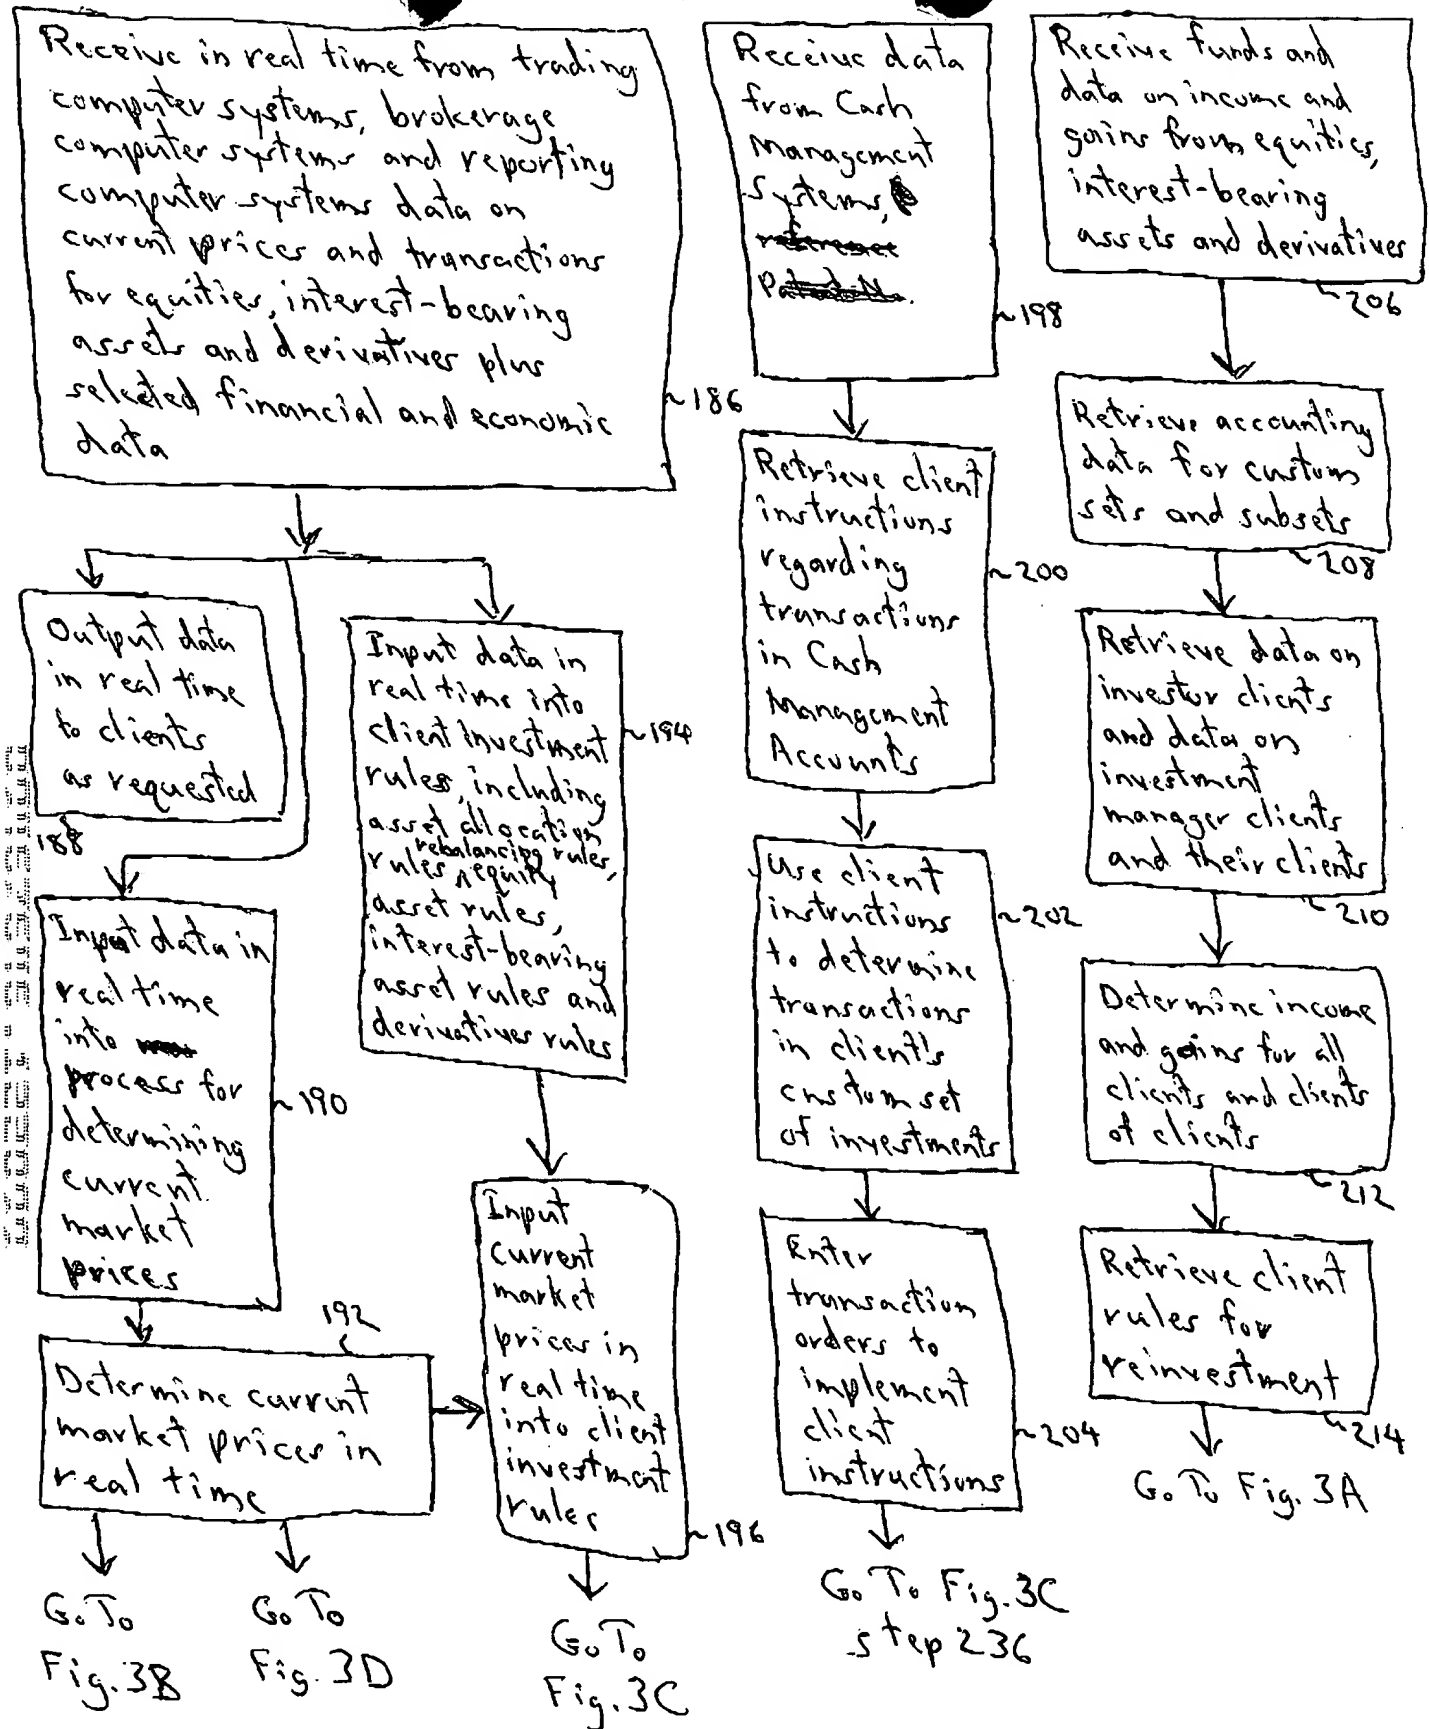 Receive in real time from trading
computer systems, brokerage
computer systems and reporting
computer systems data on
current prices and transactions
for equities, interest-bearing
assets and derivatives plus
selected financial and economic
data
~186
Output data
in real time
to clients
as requested
188
Input data in
real time
into
process for
determining
current
market
prices
~190
192
Determine current
market prices in
real time
Go To
Fig. 3B
Go To
Fig. 3D
Input data in
real time into
client investment
rules, including
asset allocation
rebalancing rules,
rules, equity
asset rules,
interest-bearing
asset rules and
derivatives rules
~194
Input
current
market
prices in
real time
into client
investment
rules
~196
Go To
Fig. 3C
Receive data
from Cash
Management
Systems,
reference
Patent No.
~198
Retrieve client
instructions
regarding
transactions
in Cash
Management
Accounts
~200
Use client
instructions
to determine
transactions
in client's
custom set
of investments
~202
Enter
transaction
orders to
implement
client
instructions
~204
Go To Fig. 3C
step 236
Receive funds and
data on income and
gains from equities,
interest-bearing
assets and derivatives
~206
Retrieve accounting
data for custom
sets and subsets
~208
Retrieve data on
investor clients
and data on
investment
manager clients
and their clients
~210
Determine income
and gains for all
clients and clients
of clients
~212
Retrieve client
rules for
reinvestment
~214
Go To Fig. 3A